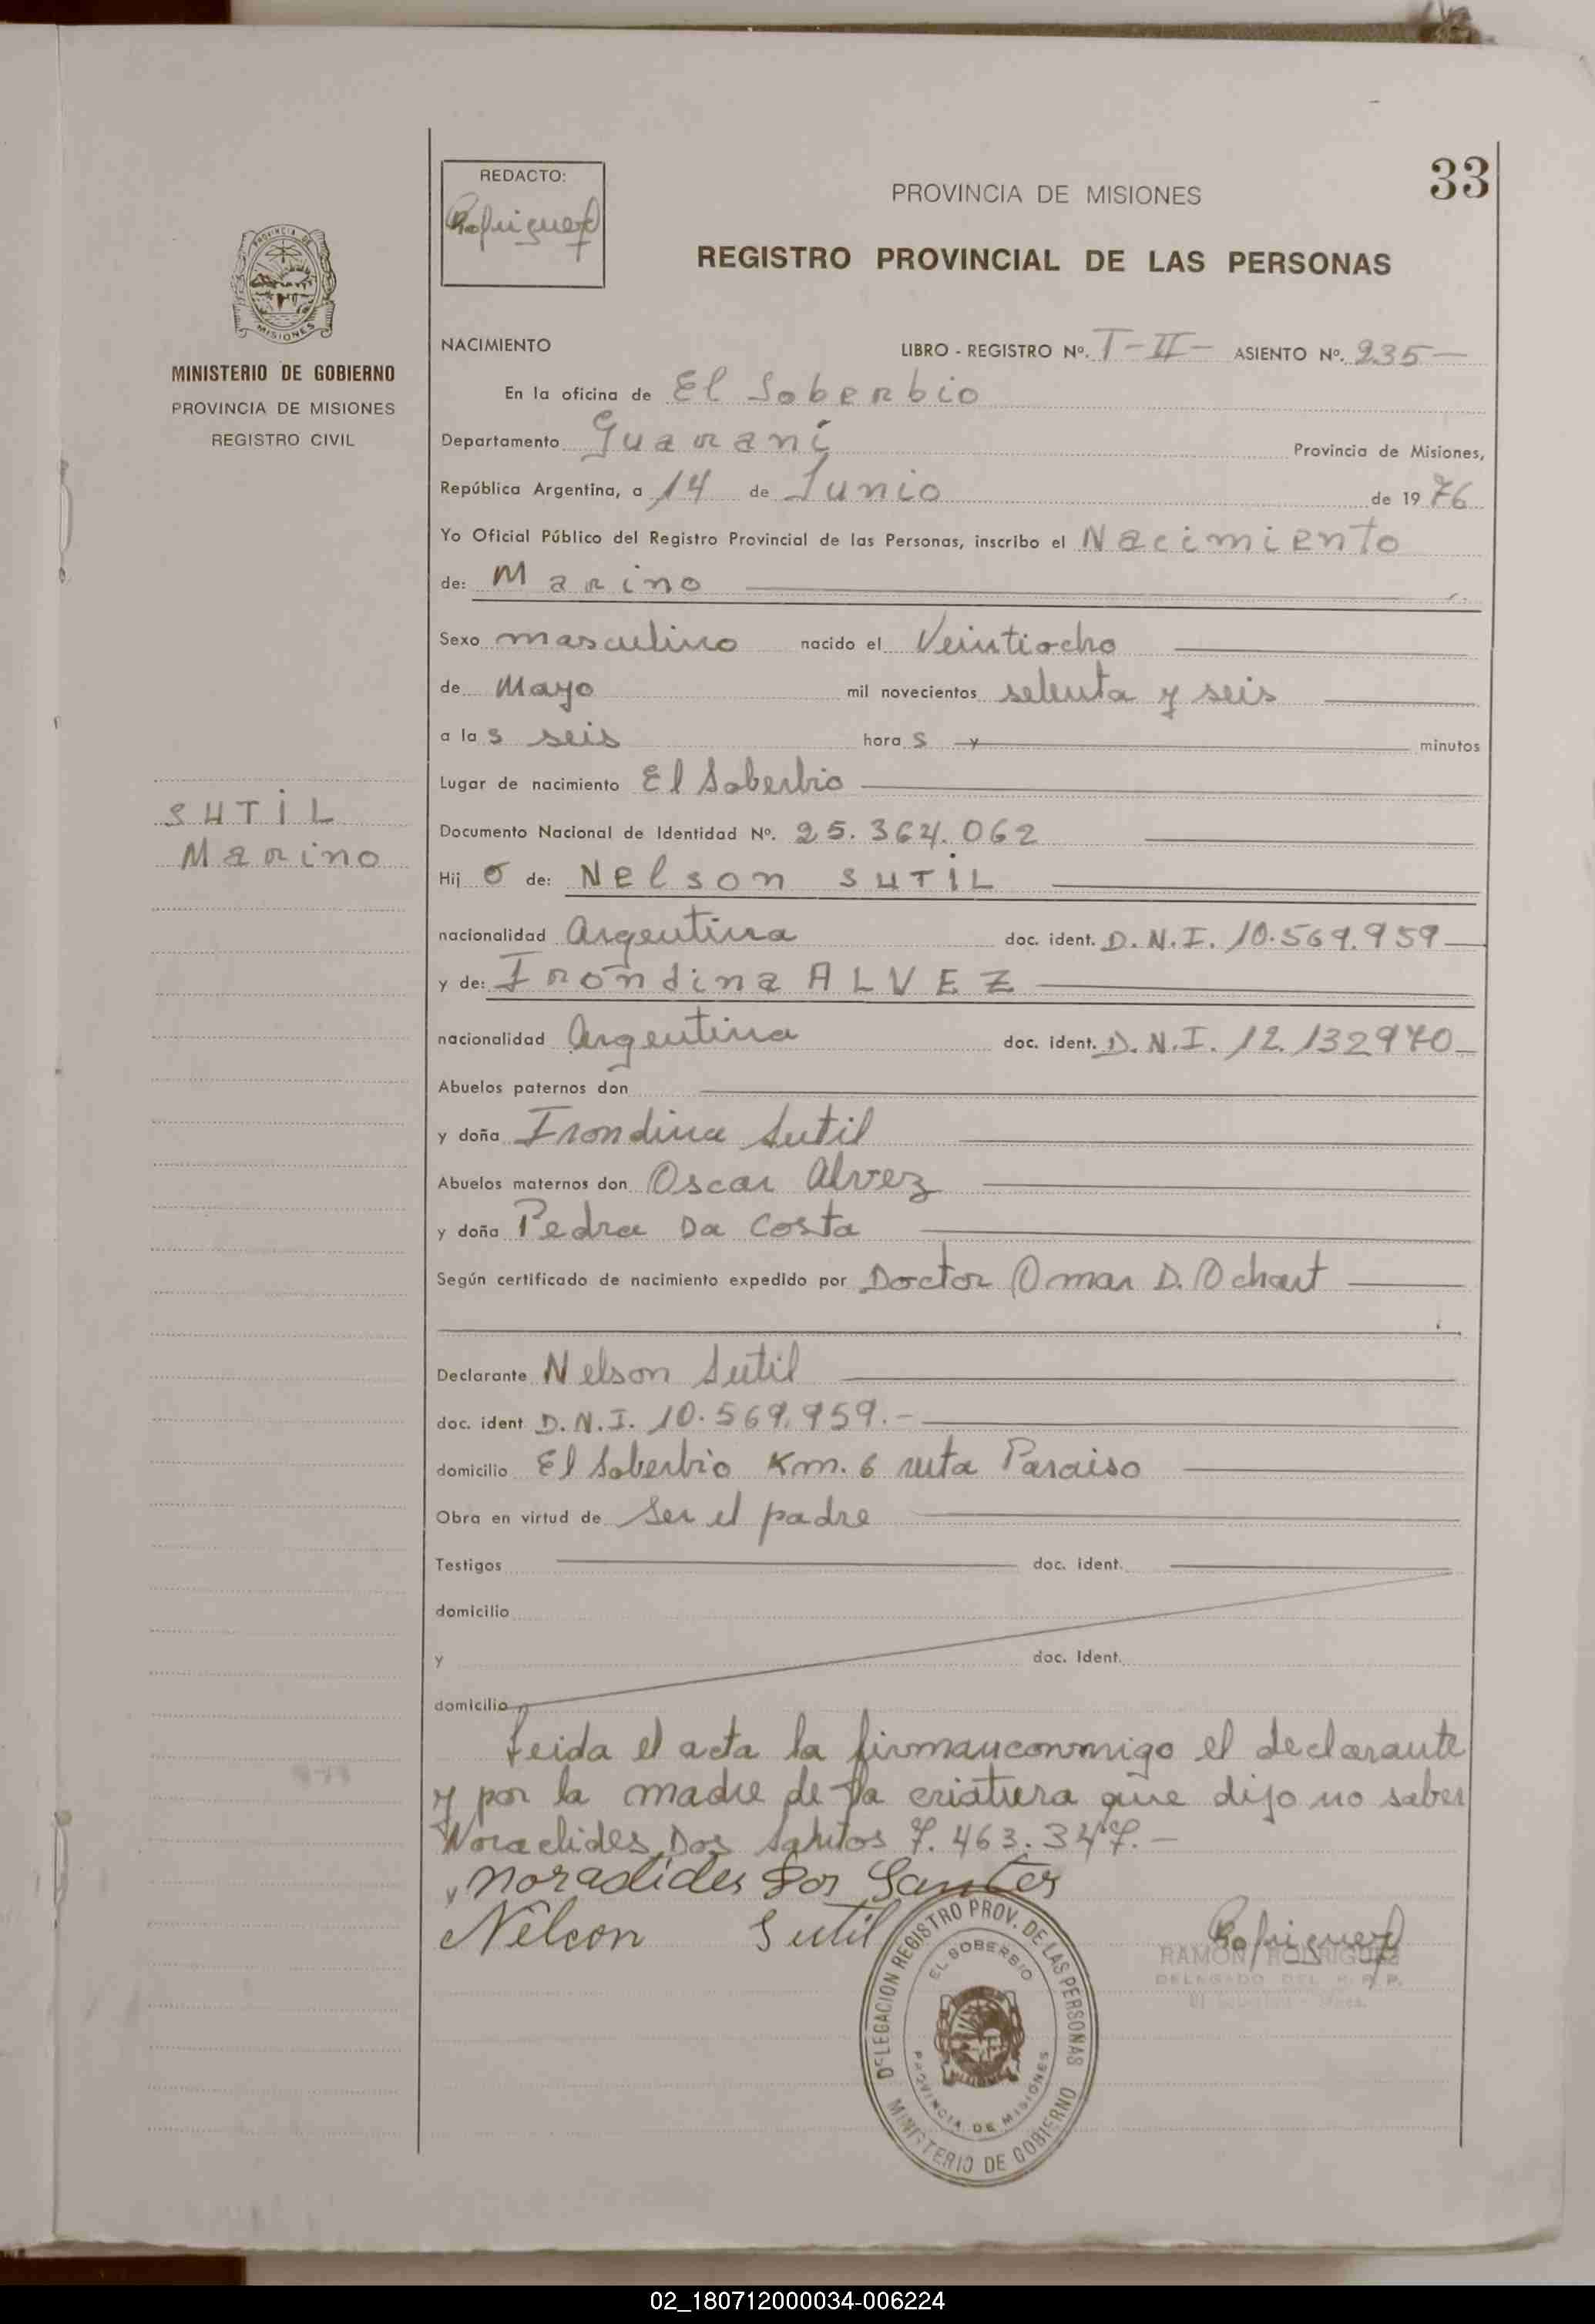 33
REDACTO:
Rodriguez
PROVINCIA DE MISIONES
REGISTRO PROVINCIAL DE LAS PERSONAS
PROVINCIA DE
MISIONES
MINISTERIO DE GOBIERNO
PROVINCIA DE MISIONES
REGISTRO CIVIL
NACIMIENTO LIBRO - REGISTRO Nº. T-II- ASIENTO Nº. 235-
En la oficina de El Soberbio
Departamento Guaraní Provincia de Misiones,
República Argentina, a 14 de Junio de 1976
Yo Oficial Público del Registro Provincial de las Personas, inscribo el Nacimiento
de: Marino
Sexo masculino nacido el Veintiocho
de Mayo mil novecientos setenta y seis
a las seis horas y minutos
Lugar de nacimiento El Soberbio
SUTIL
Marino
Documento Nacional de Identidad Nº. 25.364.062
Hijo de: Nelson SUTIL
nacionalidad Argentina doc. ident. D.N.I. 10.569.959
y de: Irondina ALVEZ
nacionalidad Argentina doc. ident. D.N.I. 12.132970
Abuelos paternos don
y doña Irondina Sutil
Abuelos maternos don Oscar Alvez
y doña Pedra Da Costa
Según certificado de nacimiento expedido por Doctor Omar D. Ochart
Declarante Nelson Sutil
doc. ident D.N.I. 10.569.959.-
domicilio El Soberbio Km. 6 ruta Paraiso
Obra en virtud de Ser el padre
Testigos doc. ident.
domicilio
y doc. Ident.
domicilio
Leida el acta la firman conmigo el declarante
y por la madre de la criatura que dijo no saber
Noraclides Dos Santos 7.463.347.-
y Noraclides Dos Santos
Nelson Sutil
Rodriguez
RAMON RODRIGUEZ
DELEGADO DEL R. P. P.
DELEGACION REGISTRO PROV. DE LAS PERSONAS
EL SOBERBIO
PROVINCIA DE MISIONES
MINISTERIO DE GOBIERNO
02_180712000034-006224